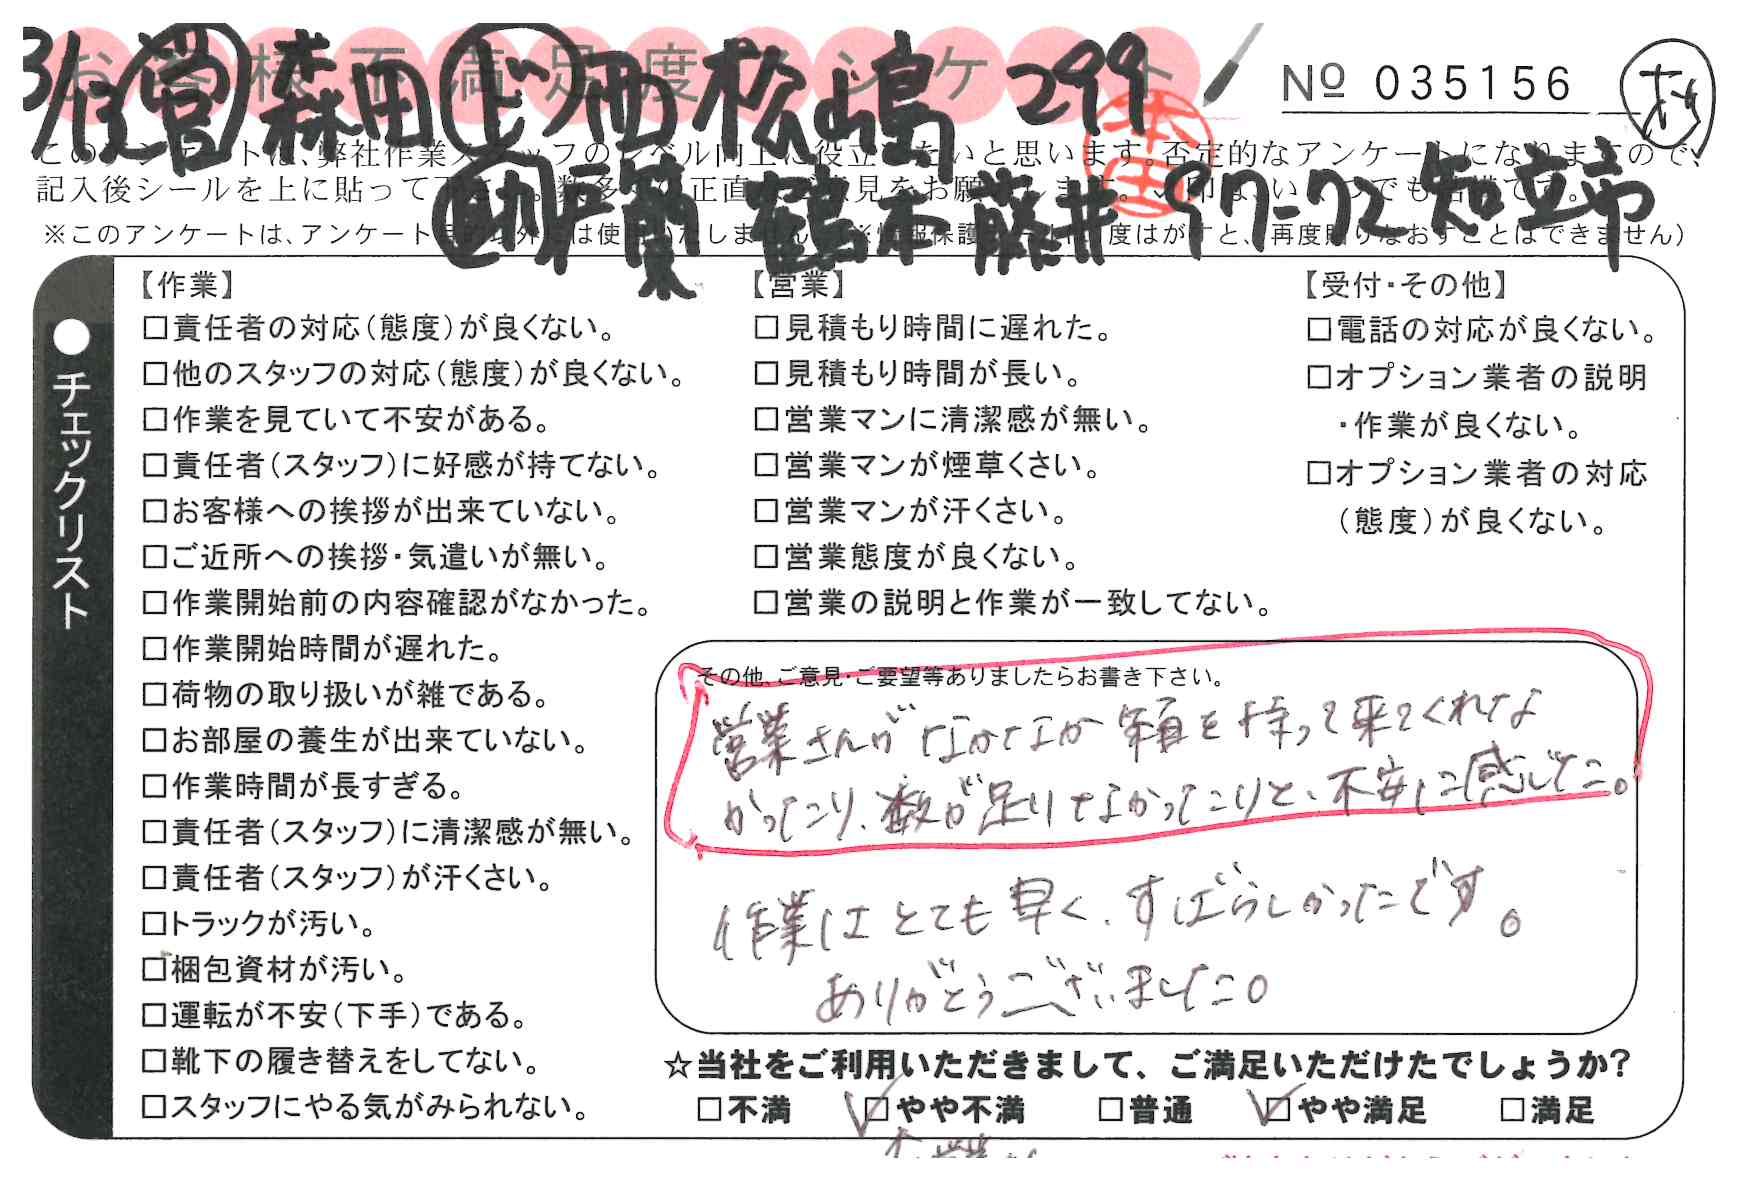 お客様不満足度アンケート
3/13 営 森田 上 西 松嶋 299
No 035156
本田
このアンケートは、弊社作業スタッフのレベル向上に役立てたいと思います。否定的なアンケートになりますので、
記入後シールを上に貼って下さい。数多くの正直なご意見をお願いします。
助 戸賀 鶴木 藤井 97-72 知立市
※このアンケートは、アンケート目的以外には使用いたしません。(※情報保護シールは1度はがすと、再度貼りなおすことはできません)
●チェックリスト
【作業】
□責任者の対応(態度)が良くない。
□他のスタッフの対応(態度)が良くない。
□作業を見ていて不安がある。
□責任者(スタッフ)に好感が持てない。
□お客様への挨拶が出来ていない。
□ご近所への挨拶・気遣いが無い。
□作業開始前の内容確認がなかった。
□作業開始時間が遅れた。
□荷物の取り扱いが雑である。
□お部屋の養生が出来ていない。
□作業時間が長すぎる。
□責任者(スタッフ)に清潔感が無い。
□責任者(スタッフ)が汗くさい。
□トラックが汚い。
□梱包資材が汚い。
□運転が不安(下手)である。
□靴下の履き替えをしてない。
□スタッフにやる気がみられない。
【営業】
□見積もり時間に遅れた。
□見積もり時間が長い。
□営業マンに清潔感が無い。
□営業マンが煙草くさい。
□営業マンが汗くさい。
□営業態度が良くない。
□営業の説明と作業が一致してない。
【受付・その他】
□電話の対応が良くない。
□オプション業者の説明
・作業が良くない。
□オプション業者の対応
(態度)が良くない。
その他、ご意見・ご要望等ありましたらお書き下さい。
営業さんがなかなか箱を持って来てくれな
かったり、数が足りなかったりと、不安に感じた。
作業はとても早く、すばらしかったです。
ありがとうございました。
☆当社をご利用いただきまして、ご満足いただけたでしょうか?
□不満 ☑やや不満 □普通 ☑やや満足 □満足